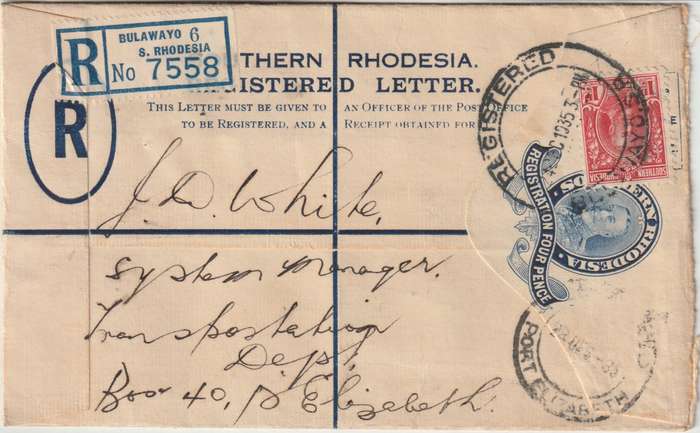 BULAWAYO 6
S. RHODESIA
R No 7558
THERN RHODESIA.
GISTERED LETTER.
THIS LETTER MUST BE GIVEN TO AN OFFICER OF THE POST OFFICE
TO BE REGISTERED, AND A RECEIPT OBTAINED FOR
R
REGISTERED
SOUTHERN
REGISTRATION FOUR PENCE
RHODESIA
J. D. White,
System Manager,
Transpostation
Dept,
Box 40, P Elizabeth.
PORT ELIZABETH